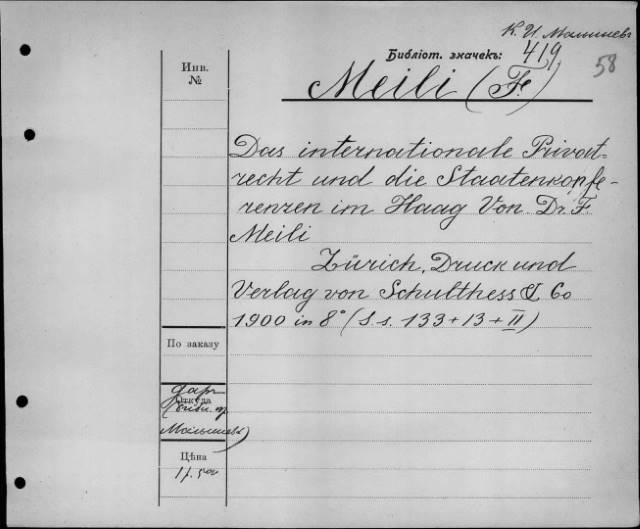 К. И. Малышевъ
Библіот. значекъ: 419
58
Инв.
№
Meili (F.)
Das internationale Privat-
recht und die Staatenkonfe-
renzen im Haag Von Dr. F.
Meili
Zürich, Druck und
Verlag von Schulthess & Co
1900 in 8° (S.s. 133+13+II)
По заказу
Откуда
даръ
Малышевъ)
Цѣна